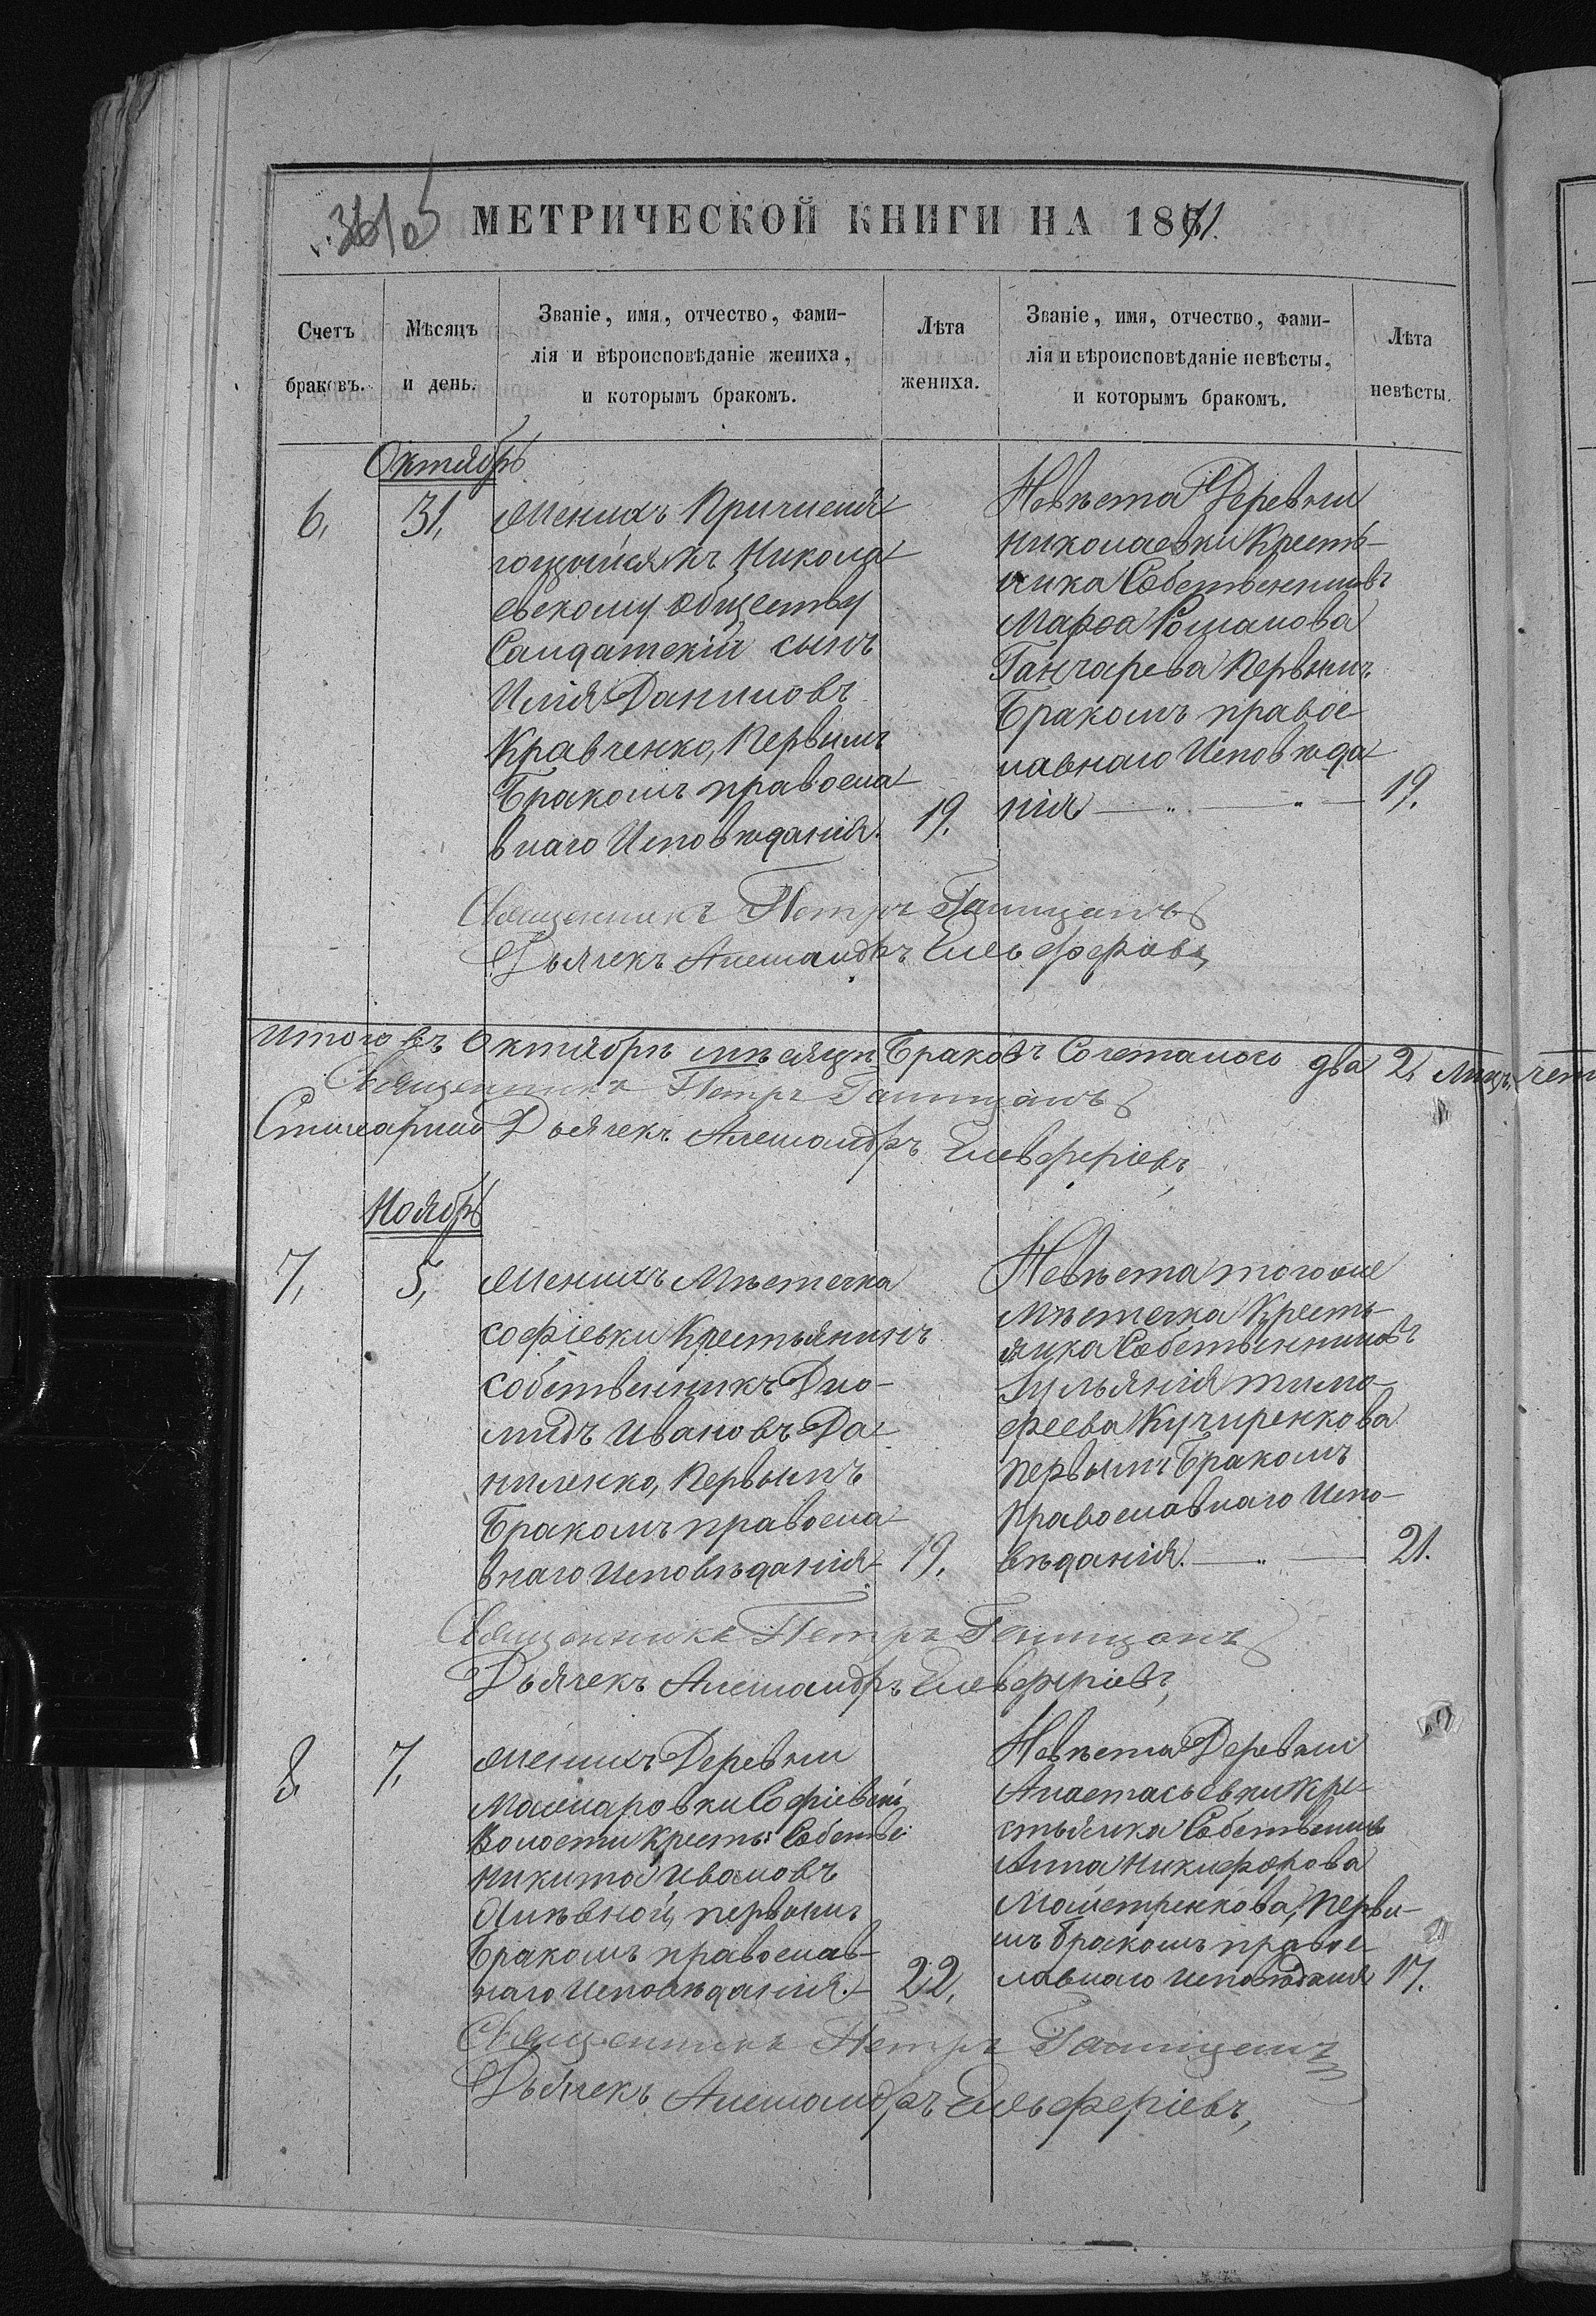 361 об
МЕТРИЧЕСКОЙ КНИГИ НА 1871.
Счетъ
браковъ.
Мѣсяцъ
и день.
Званіе, имя, отчество, фами-
лія и вѣроисповѣданіе жениха,
и которымъ бракомъ.
Лѣта
жениха.
Званіе, имя, отчество, фами-
лія и вѣроисповѣданіе невѣсты,
и которымъ бракомъ.
Лѣта
невѣсты.
Октябрь
6, 31,
Женихъ Причисля-
ющійся къ Никола-
евскому обществу
Салдатскій сынъ
Илія Даниловъ
Кравченко, Первымъ
Бракомъ правосла-
внаго Исповѣданія. 19.
Невѣста Деревни
Николаевки Кресть-
янка Собственниковъ
Марѳа Романова
Ганчарева Первымъ
Бракомъ правос-
лавнаго Исповѣда-
нія 19.
Священникъ Петръ
Дьячекъ Александръ Елевферовъ,
Итого въ Октябрѣ мѣсяцѣ Браковъ Сочетаного два 2,
Священникъ Петръ
Стихарный Дьячекъ Александръ Елевферіевъ,
Ноябрь
7, 5,
Женихъ Мѣстечка
Софіевки Крестьянинъ
собственникъ Дио-
мидъ Ивановъ Да-
ниленко, Первымъ
Бракомъ правосла-
внаго Исповѣданія 19.
Невѣста того же
Мѣстечка Кресть-
янка Собственниковъ
Іульянія Тимо-
феева Кучиренкова
Первымъ Бракомъ
Православнаго Испо-
вѣданія. 21.
Священникъ Петръ
Дьячекъ Александръ Елевферіевъ,
8 7,
Женихъ Деревни
Софіевской
Волости Кресть: Собстве:
Никита Ивановъ
первымъ
Бракомъ православ-
наго Исповѣданія. 22,
Невѣста Деревни
Анастасьевки Кре-
стьянка Собственников
Анна Никифорова
Майстренкова, Первы-
мъ Бракомъ правос-
лавнаго исповѣданія 17.
Священникъ Петръ
Дьячекъ Александръ Елевферіевъ,